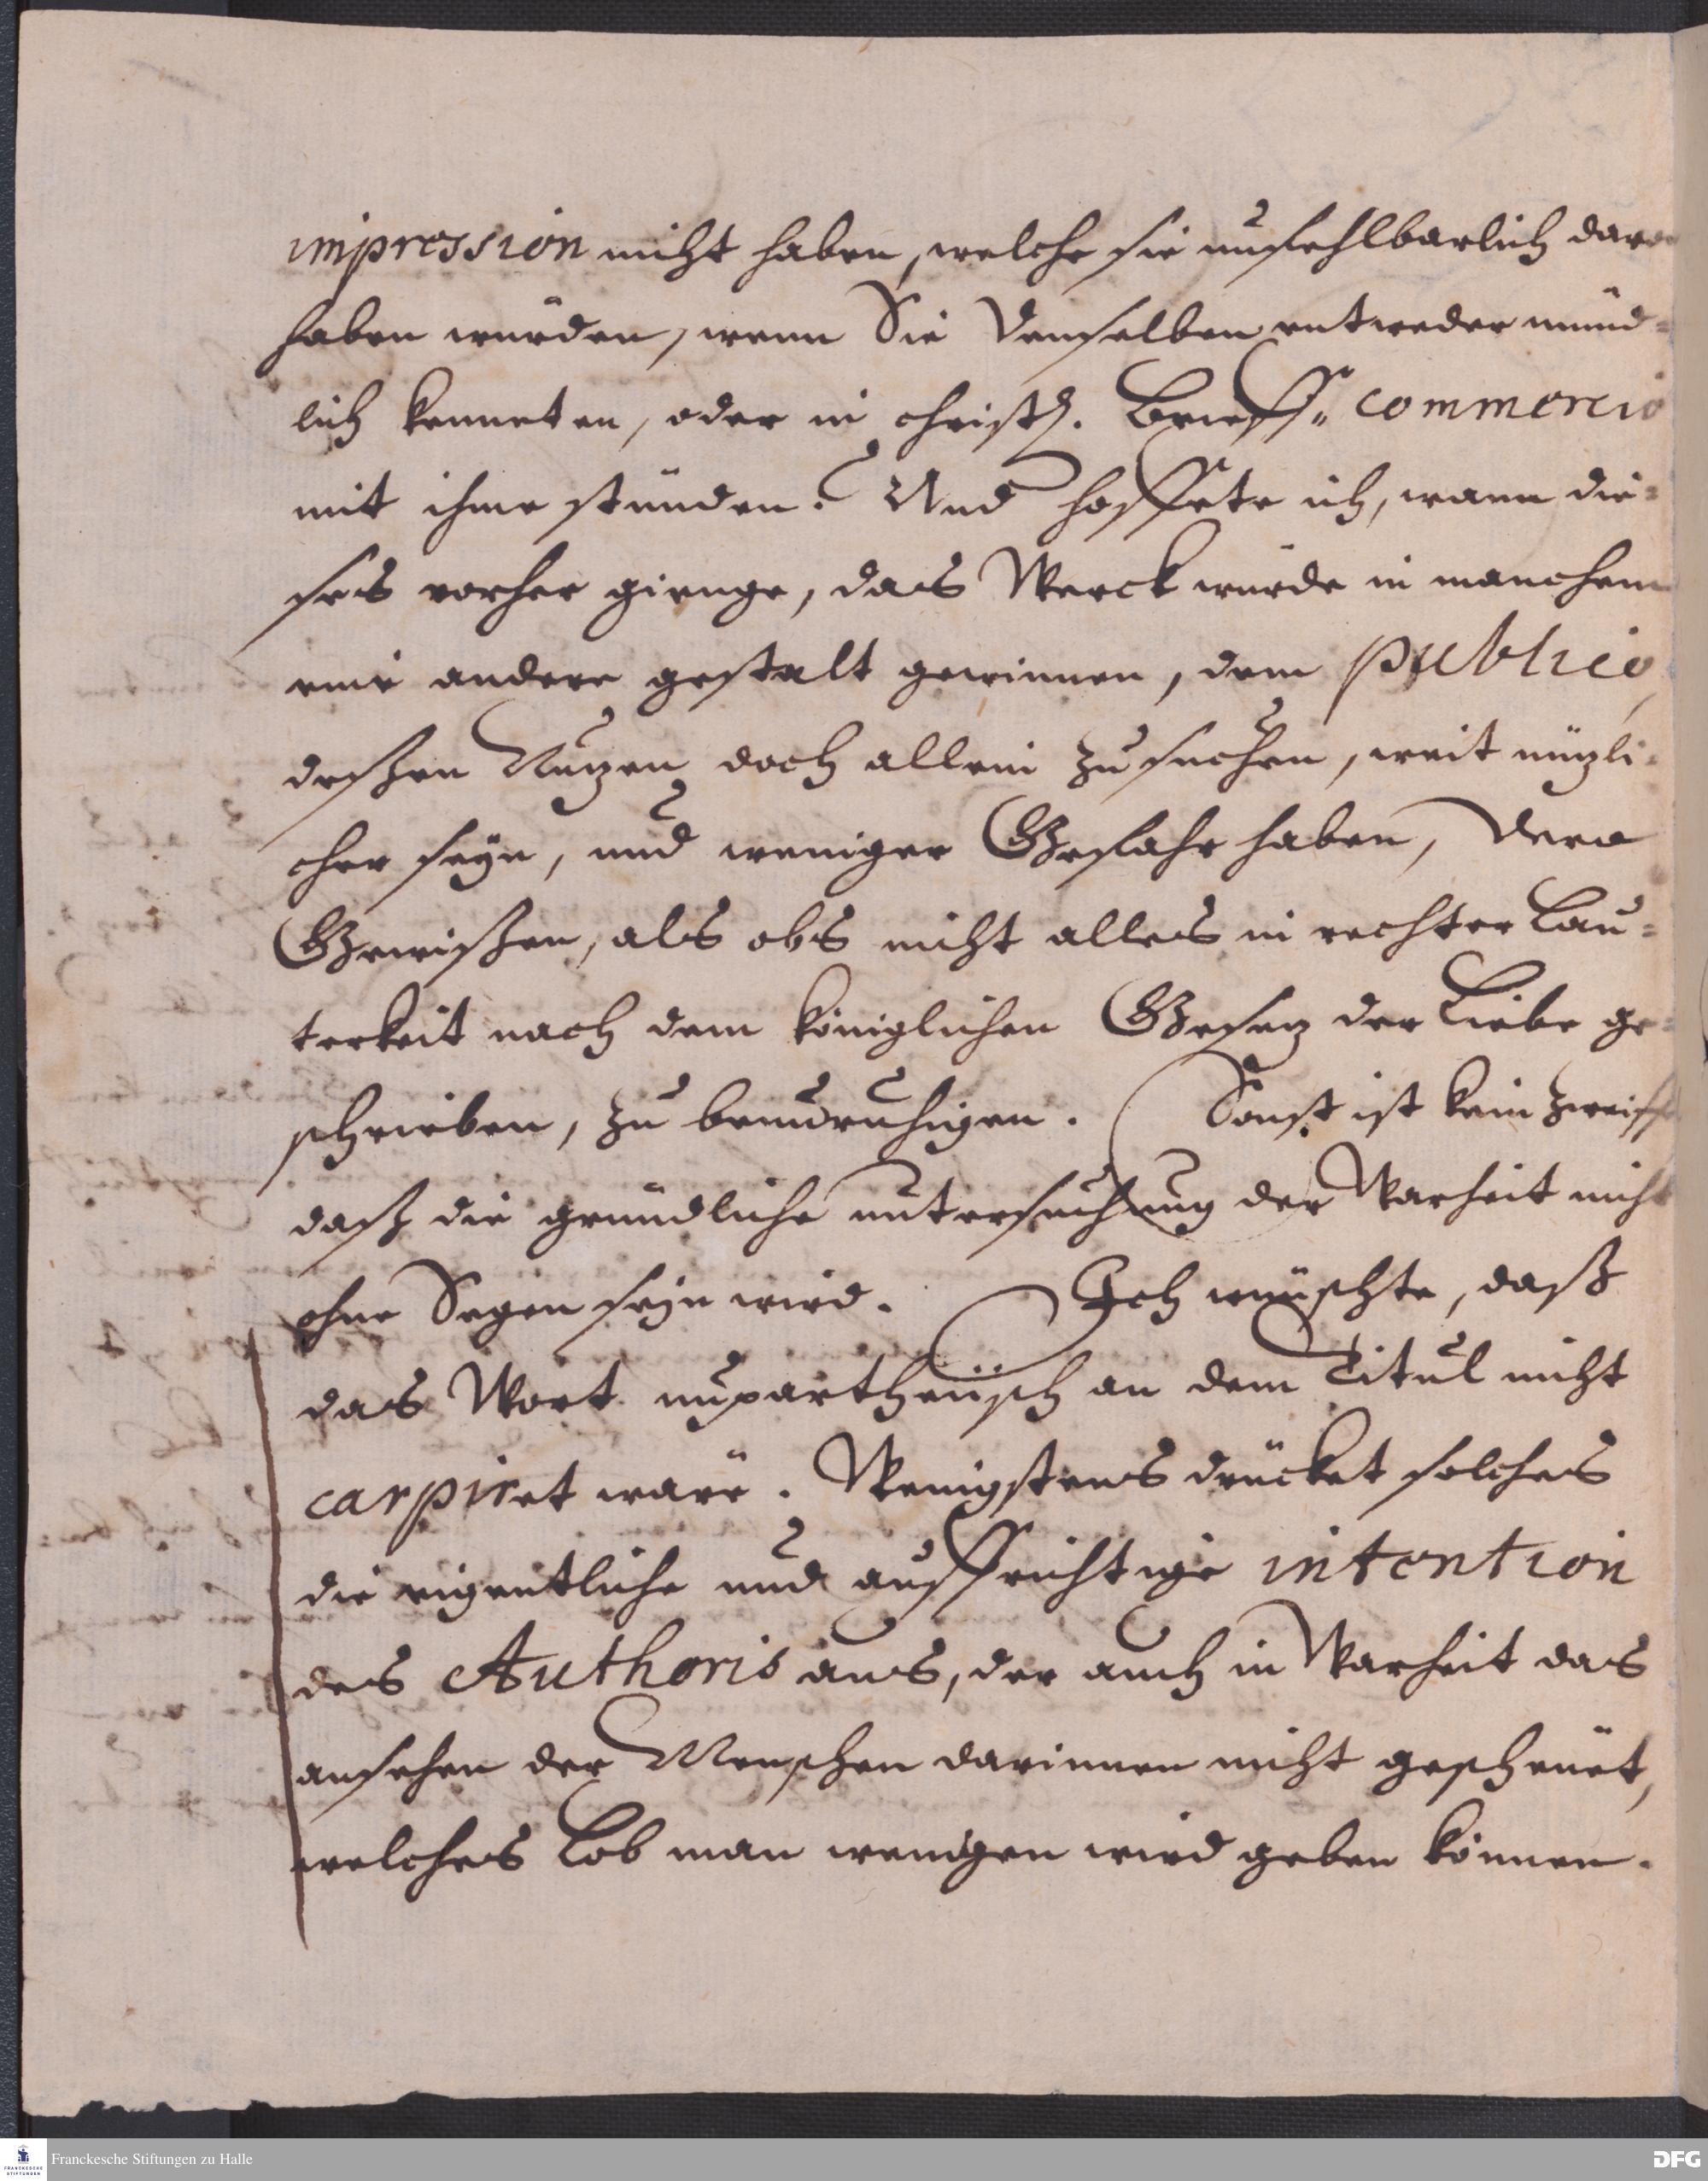 impression nicht haben, welche sie unfehlbarlich davon
haben würden, wenn Sie denselben entweder münd-
lich kenneten, oder in christl. Brieff- commercio
mit ihme stünden. Und hoffete ich, wann die-
ses vorher gienge, das Werck würde in manchem
eine andere gestalt gewinnen, dem publico,
deßen Nuzen doch allein zu suchen, weit nüzli-
cher seyn, und weniger Gefahr haben, dero
Gewißen, als obs nicht alles in rechter Lau-
terkeit nach dem königlichen Gesez der Liebe ge-
schrieben, zu beunruhigen. Sonst ist kein zweiffel
daß die gründliche untersuchung der Warheit nicht
ohne Segen seyn wird. Ich wünschte, daß
das Wort unpartheyisch an dem Titul nicht
carpiret wäre. Wenigstens drücket solches
die eigentliche und auffrichtige intention
des Authoris aus, der auch in Warheit das
ansehen der Menschen darinnen nicht gescheuet,
welches Lob man wenigen wird geben können.
Franckesche Stiftungen zu Halle
DFG